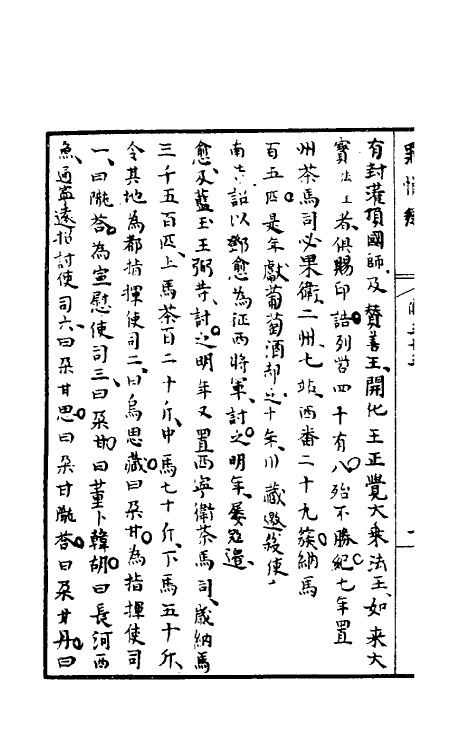 有封灌頂國師及贊善王開化王正覺大乘法王如来大
寳法王者俱賜印誥列營四十有八殆不勝紀七年置
州茶馬司必果衛二州七站西番二十九簇納馬
百五匹是年獻葡萄酒却之十年川藏邀殺使
南吉詔以鄧愈為征西將軍討之明年屡殺邊
愈及藍玉王弼等討之明年又置西寧衛茶馬司歲納馬
三千五百匹上馬茶百二十斤中馬七十斤下馬五十斤
令其地為都指揮使司二曰烏思藏曰朶甘為指揮使司
一曰隴荅為宣慰使司三曰朶甘曰董卜韓胡曰長河西
魚通寧遠招討使司六曰朶甘思曰朶甘隴荅曰朶甘丹曰